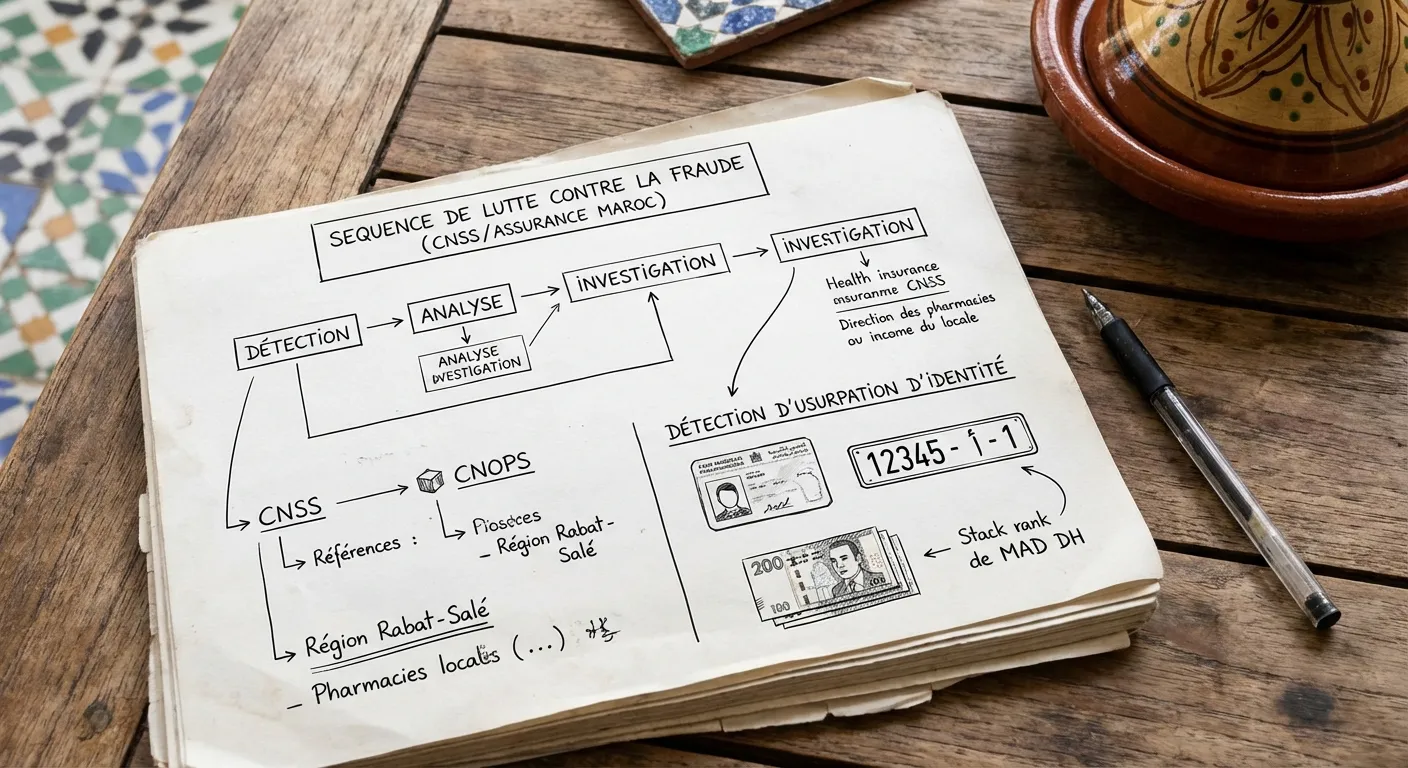 SEQUENCE DE LUTTE CONTRE LA FRAUDE
(CNSS/ASSURANCE MAROC)
DÉTECTION
ANALYSE
ANALYSE
INVESTIGATION
INVESTIGATION
Health insurance
CNSS
Direction des pharmacies
ou income du locale
CNSS
Références :
CNOPS
- Région Rabat-
Salé
Région Rabat-Salé
- Pharmacies locales (...)
DÉTECTION D'USURPATION D'IDENTITÉ
12345 - أ - 1
200
100
Stack rank
de MAD DH